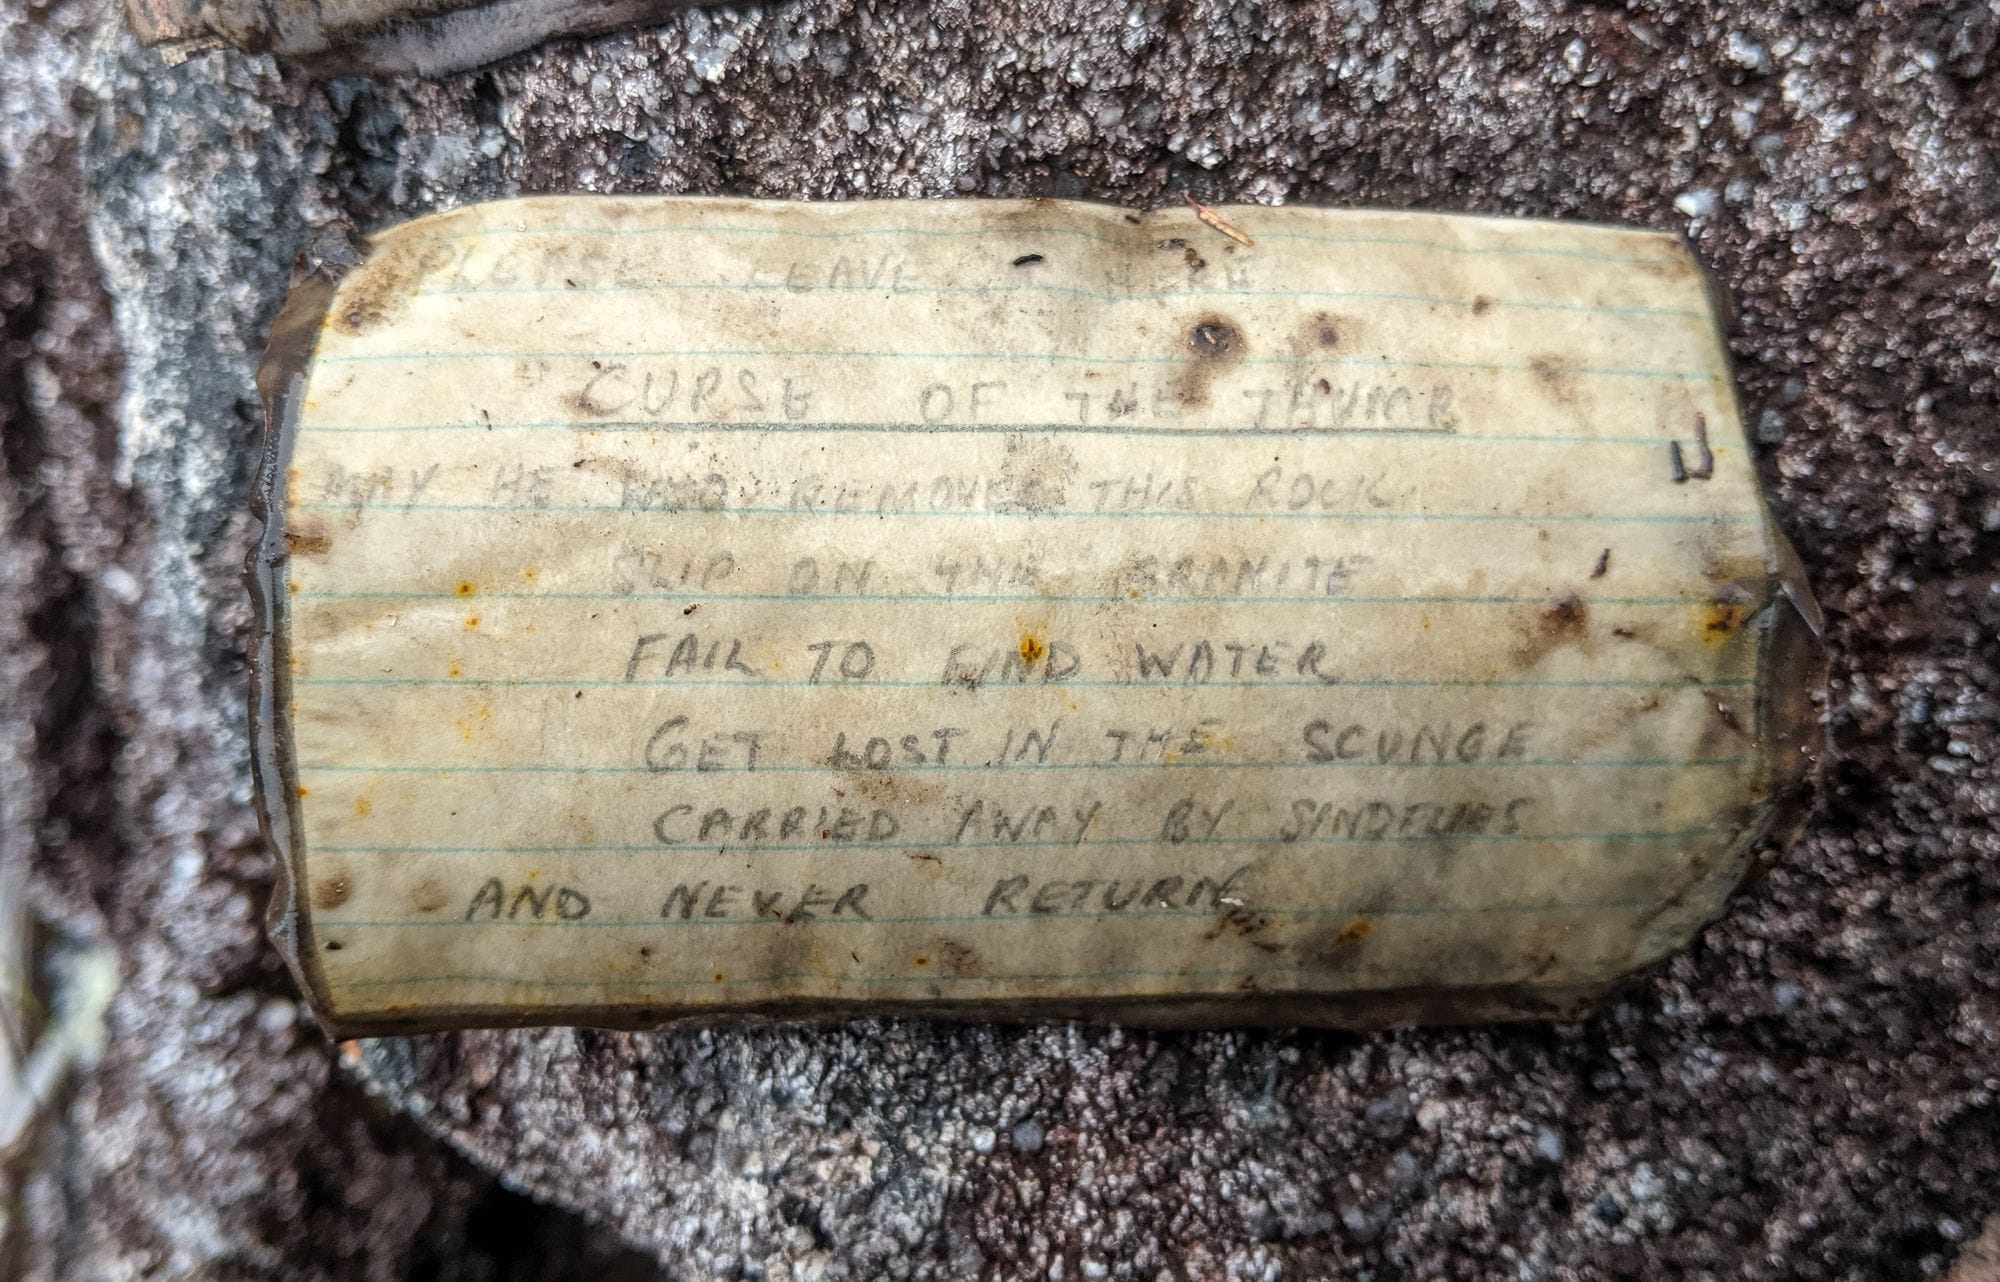 PLEASE LEAVE
CURSE OF THE THUMB
MAY HE WHO REMOVES THIS ROCK
SLIP ON THE GRANITE
FAIL TO FIND WATER
GET LOST IN THE SCUNGE
CARRIED AWAY BY
AND NEVER RETURN